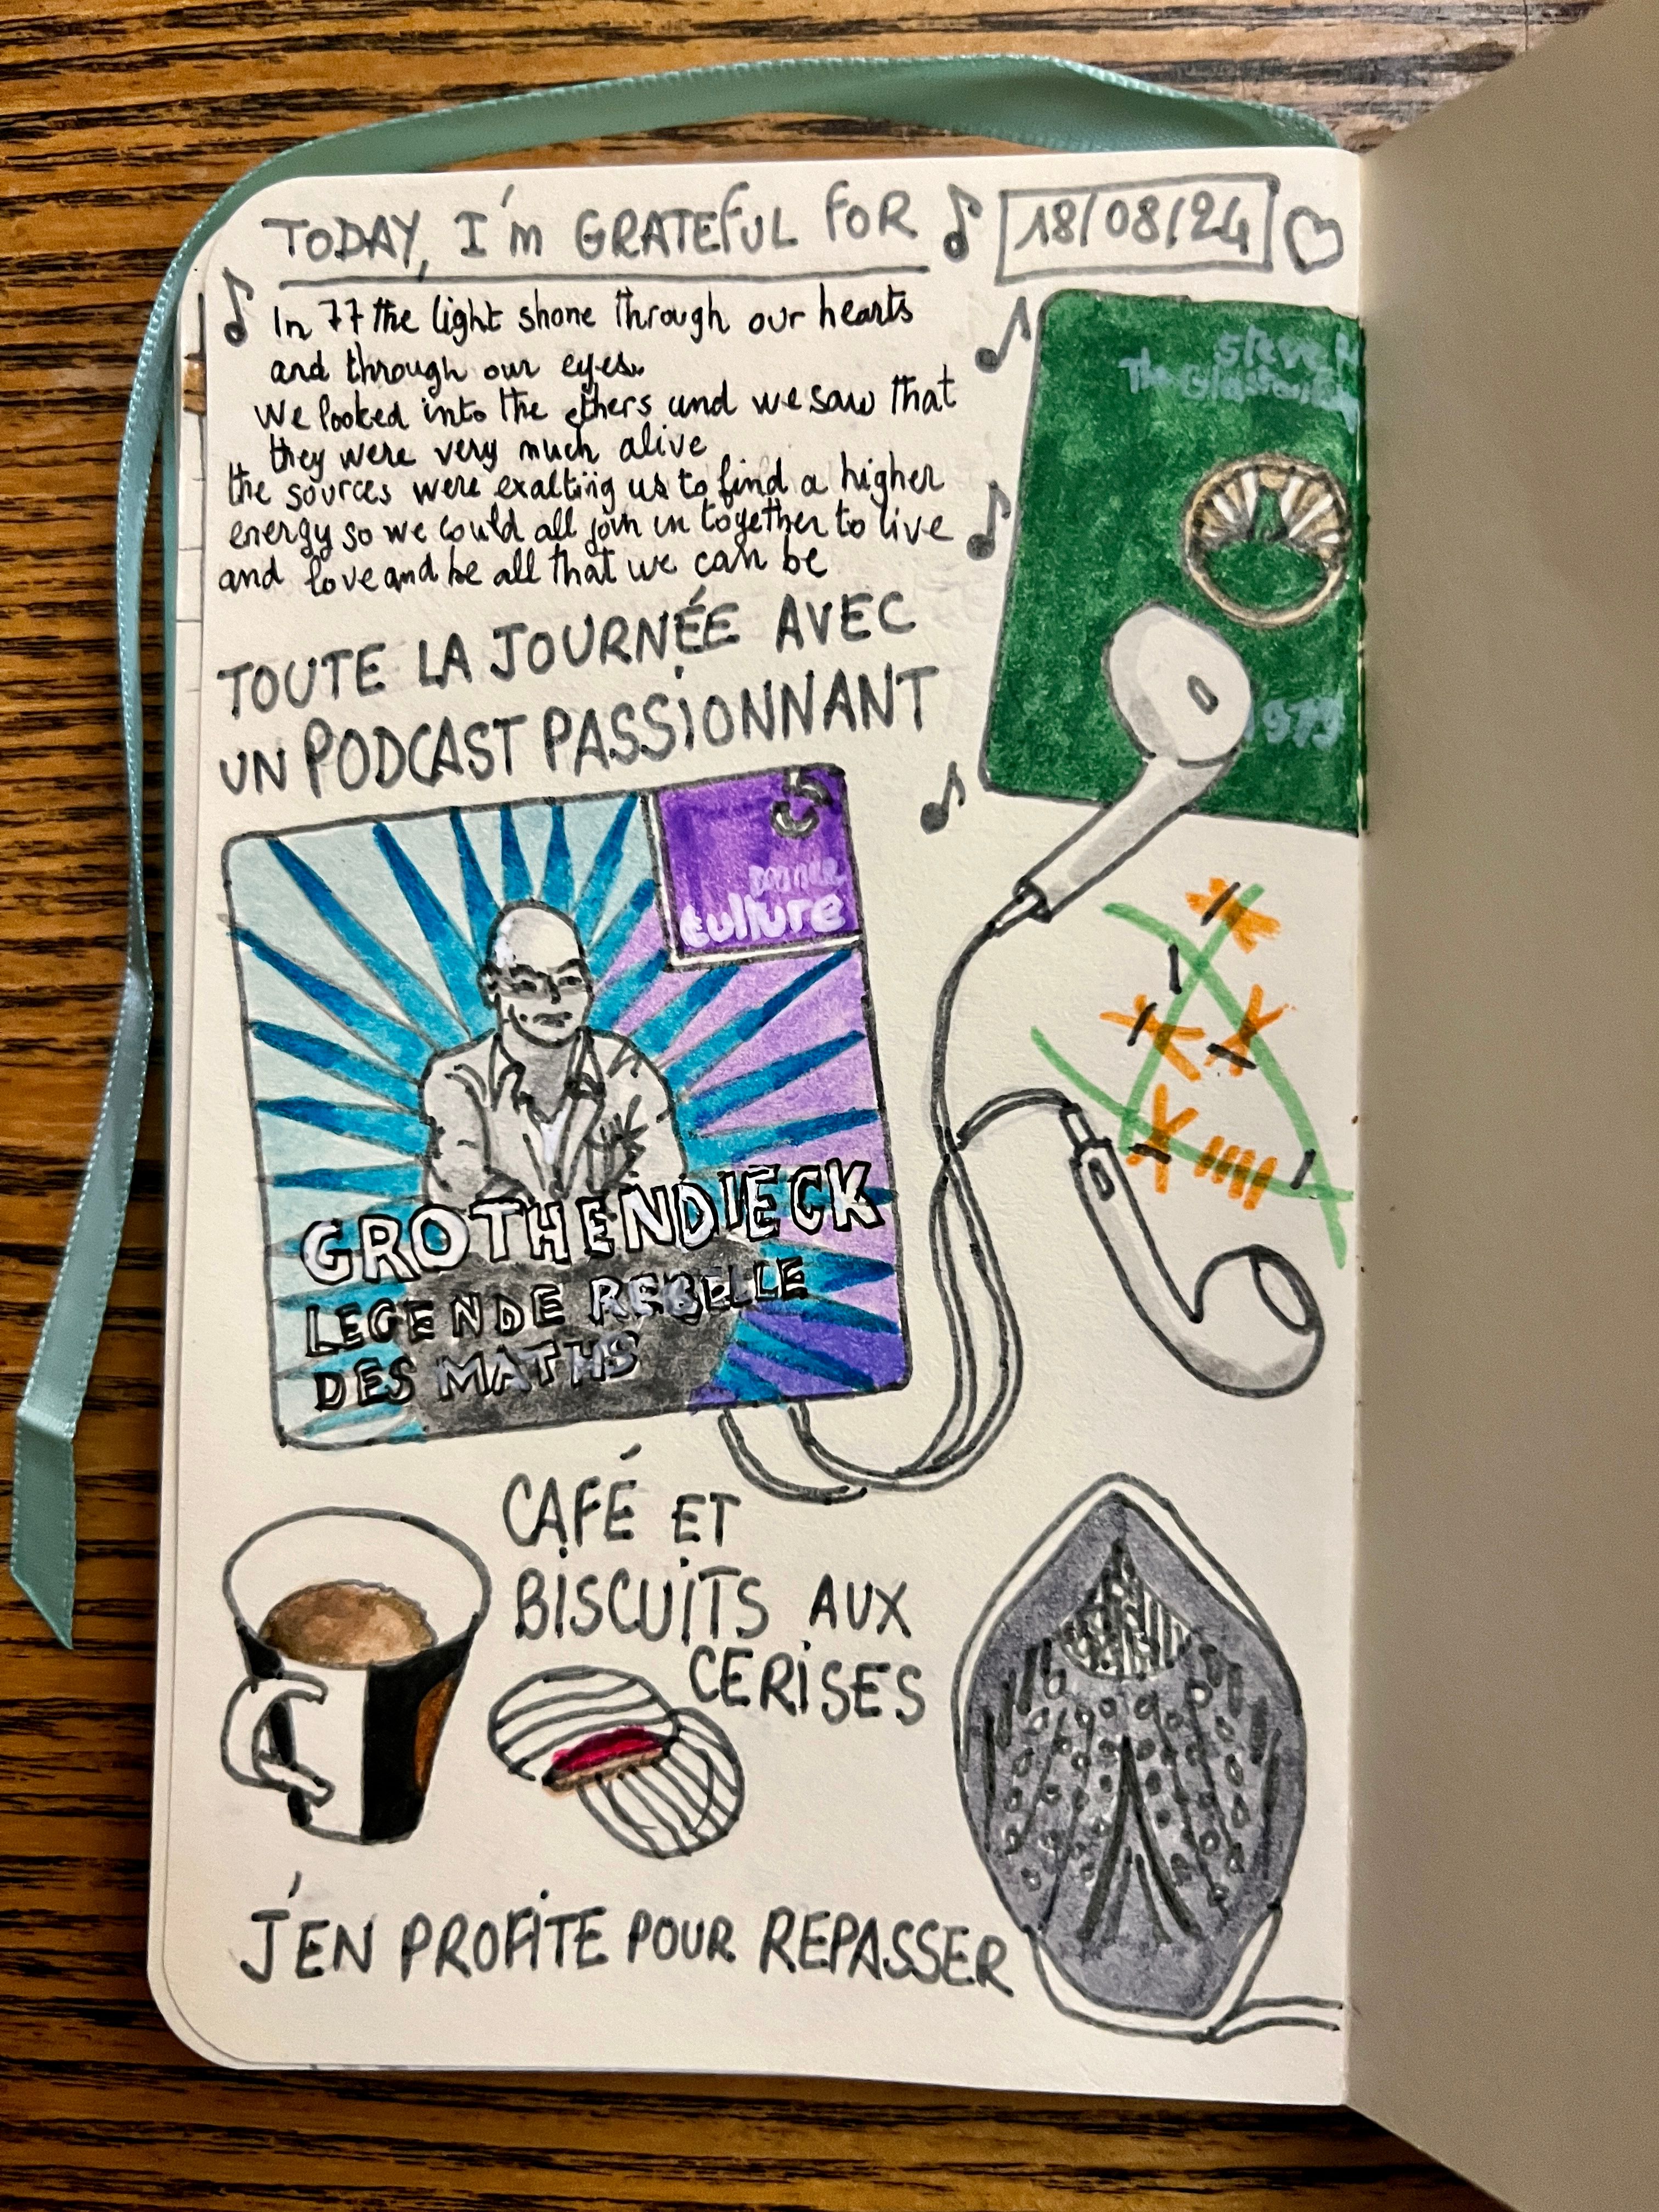 TODAY, I'm GRATEFUL FOR
18/08/24
In 77 the light shone through our hearts
and through our eyes.
We looked into the ethers and we saw that
they were very much alive
the sources were exalting us to find a higher
energy so we could all join in together to live
and love and be all that we can be
Steve
The
1979
TOUTE LA JOURNÉE AVEC
UN PODCAST PASSIONNANT
culture
GROTHENDIECK
LEGENDE REBELLE
DES MATHS
CAFÉ ET
BISCUITS AUX
CERISES
J'EN PROFITE POUR REPASSER